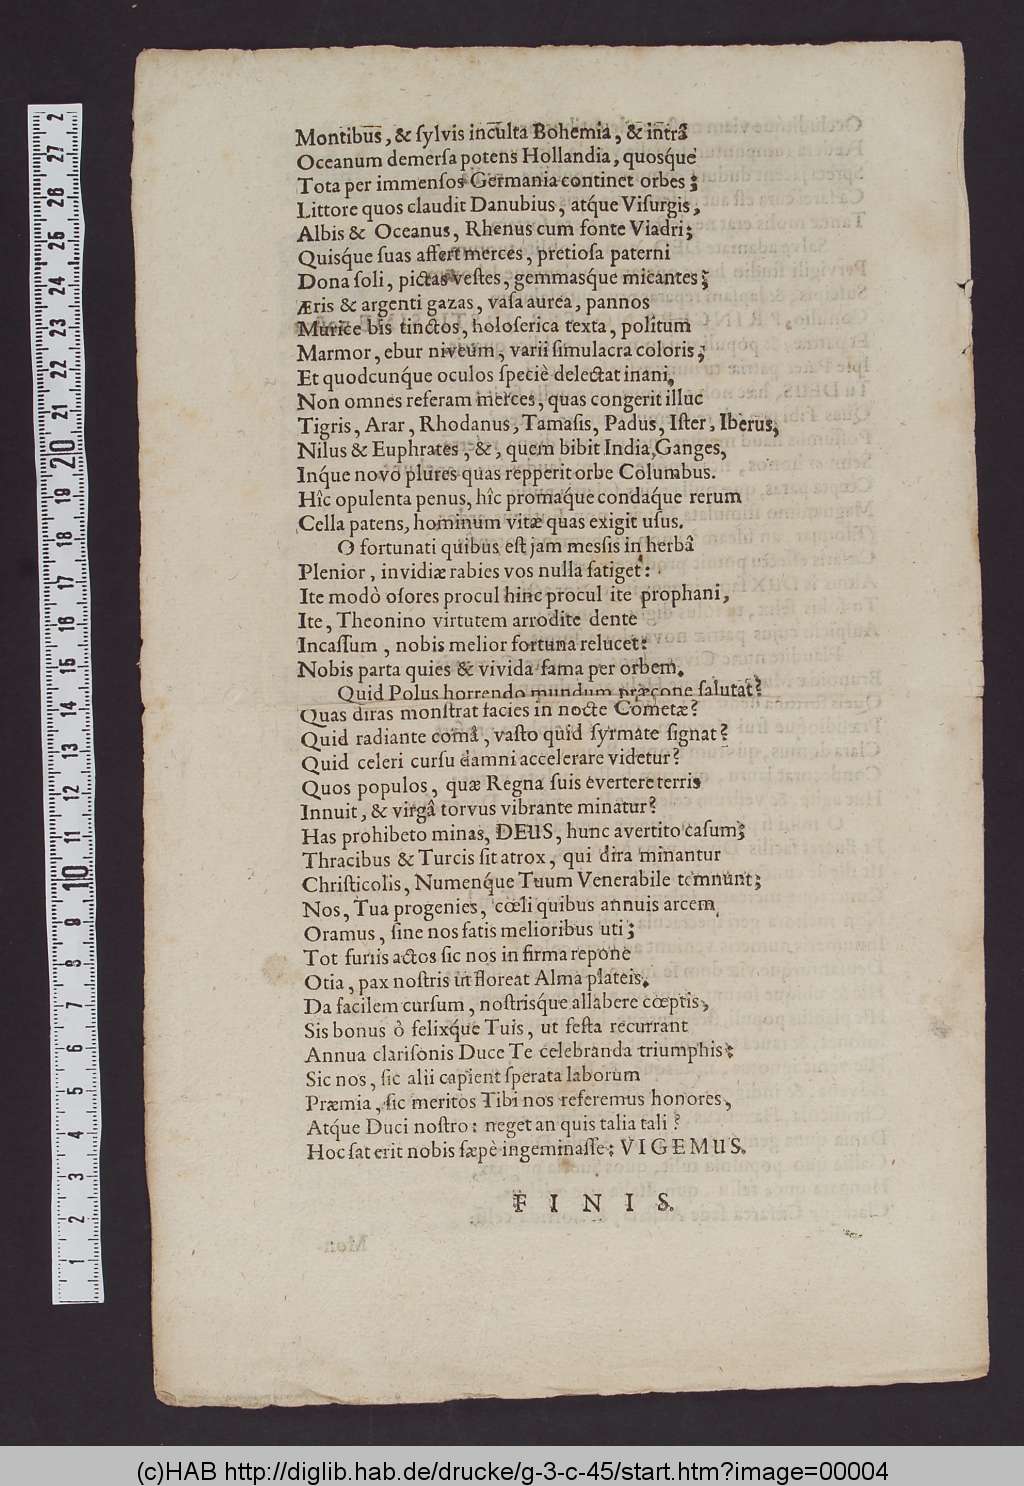 Montibus, & ſylvis inculta Bohemia, & intrâ
Oceanum demerſa potens Hollandia, quosq́ue
Tota per immenſos Germania continet orbes;
Littore quos claudit Danubius, atq́ue Viſurgis,
Albis & Oceanus, Rhenus cum fonte Viadri;
Quisq́ue ſuas affert merces, pretioſa paterni
Dona ſoli, pictas veſtes, gemmasque micantes;
Æris & argenti gazas, vaſa aurea, pannos
Murice bis tinctos, holoſerica texta, politum
Marmor, ebur niveum, varii ſimulacra coloris;
Et quodcunq́ue oculos ſpeciè delectat inani.
Non omnes referam merces, quas congerit illuc
Tigris, Arar, Rhodanus, Tamaſis, Padus, Iſter, Iberus,
Nilus & Euphrates, &, quem bibit India, Ganges,
Inq́ue novo plures quas repperit orbe Columbus.
Hîc opulenta penus, hîc promaq́ue condaq́ue rerum
Cella patens, hominum vitæ quas exigit uſus.
O fortunati quibus eſt jam meſsis in herbâ
Plenior, invidiæ rabies vos nulla fatiget:
Ite modò oſores procul hinc procul ite prophani,
Ite, Theonino virtutem arrodite dente
Incaſſum, nobis melior fortuna relucet:
Nobis parta quies & vivida fama per orbem.
Quid Polus horrendo mundum præcone ſalutat?
Quas diras monſtrat facies in nocte Cometæ?
Quid radiante comâ, vaſto quid ſyrmate ſignat?
Quid celeri curſu damni accelerare videtur?
Quos populos, quæ Regna ſuis evertere terris
Innuit, & virgâ torvus vibrante minatur?
Has prohibeto minas, DEUS, hunc avertito caſum;
Thracibus & Turcis ſit atrox, qui dira minantur
Chriſticolis, Numenq́ue Tuum Venerabile temnunt;
Nos, Tua progenies, cœli quibus annuis arcem
Oramus, ſine nos fatis melioribus uti;
Tot furiis actos ſic nos in firma repone
Otia, pax noſtris ut floreat Alma plateis.
Da facilem curſum, noſtrisque allabere cœptis,
Sis bonus ô felixq́ue Tuis, ut feſta recurrant
Annua clariſonis Duce Te celebranda triumphis:
Sic nos, ſic alii capient ſperata laborum
Præmia, ſic meritos Tibi nos referemus honores,
Atq́ue Duci noſtro: neget an quis talia tali?
Hoc ſat erit nobis ſæpè ingeminaſſe: VIGEMUS.
FINIS.
1 2 3 4 5 6 7 8 9 10 11 12 13 14 15 16 17 18 19 20 21 22 23 24 25 26 27 2
(c)HAB http://diglib.hab.de/drucke/g-3-c-45/start.htm?image=00004